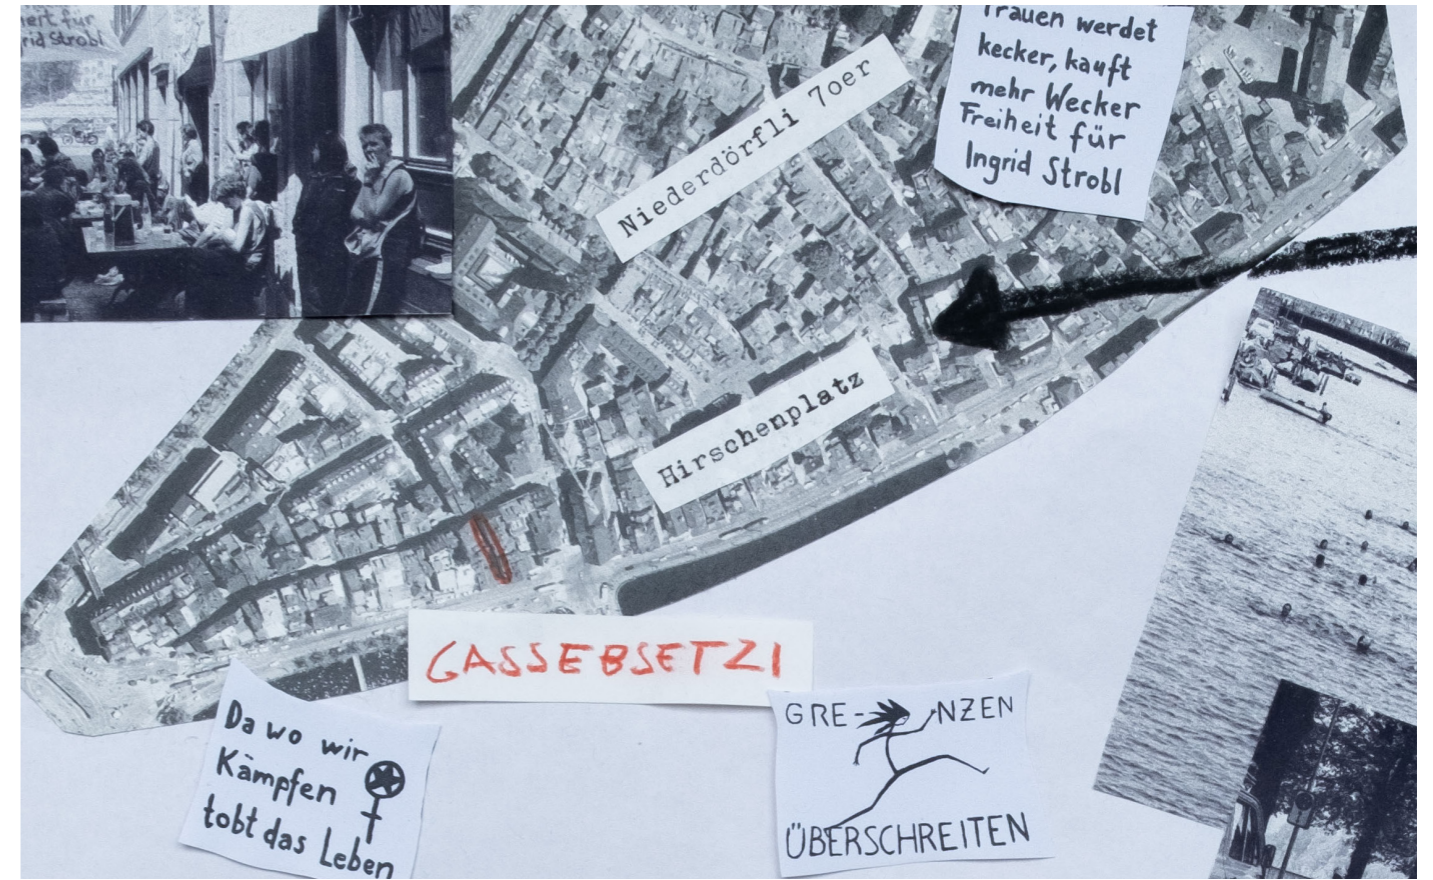 eit für
rid Strobl
Niederdörfli 70er
Frauen werdet
kecker, kauft
mehr Wecker
Freiheit für
Ingrid Strobl
Hirschenplatz
GASSEBSETZI
Da wo wir
Kämpfen
tobt das Leben
GRE-NZEN
ÜBERSCHREITEN